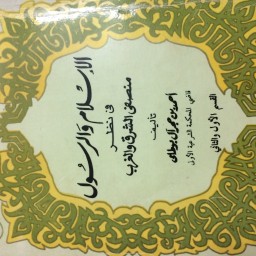 الإسلام والرسول
في نظر
منصفي الشرق والغرب
تأليف
أحمد بن حجر آل بوطامي
قاضي المحكمة الشرعية الأولى
القسم الأول والثاني